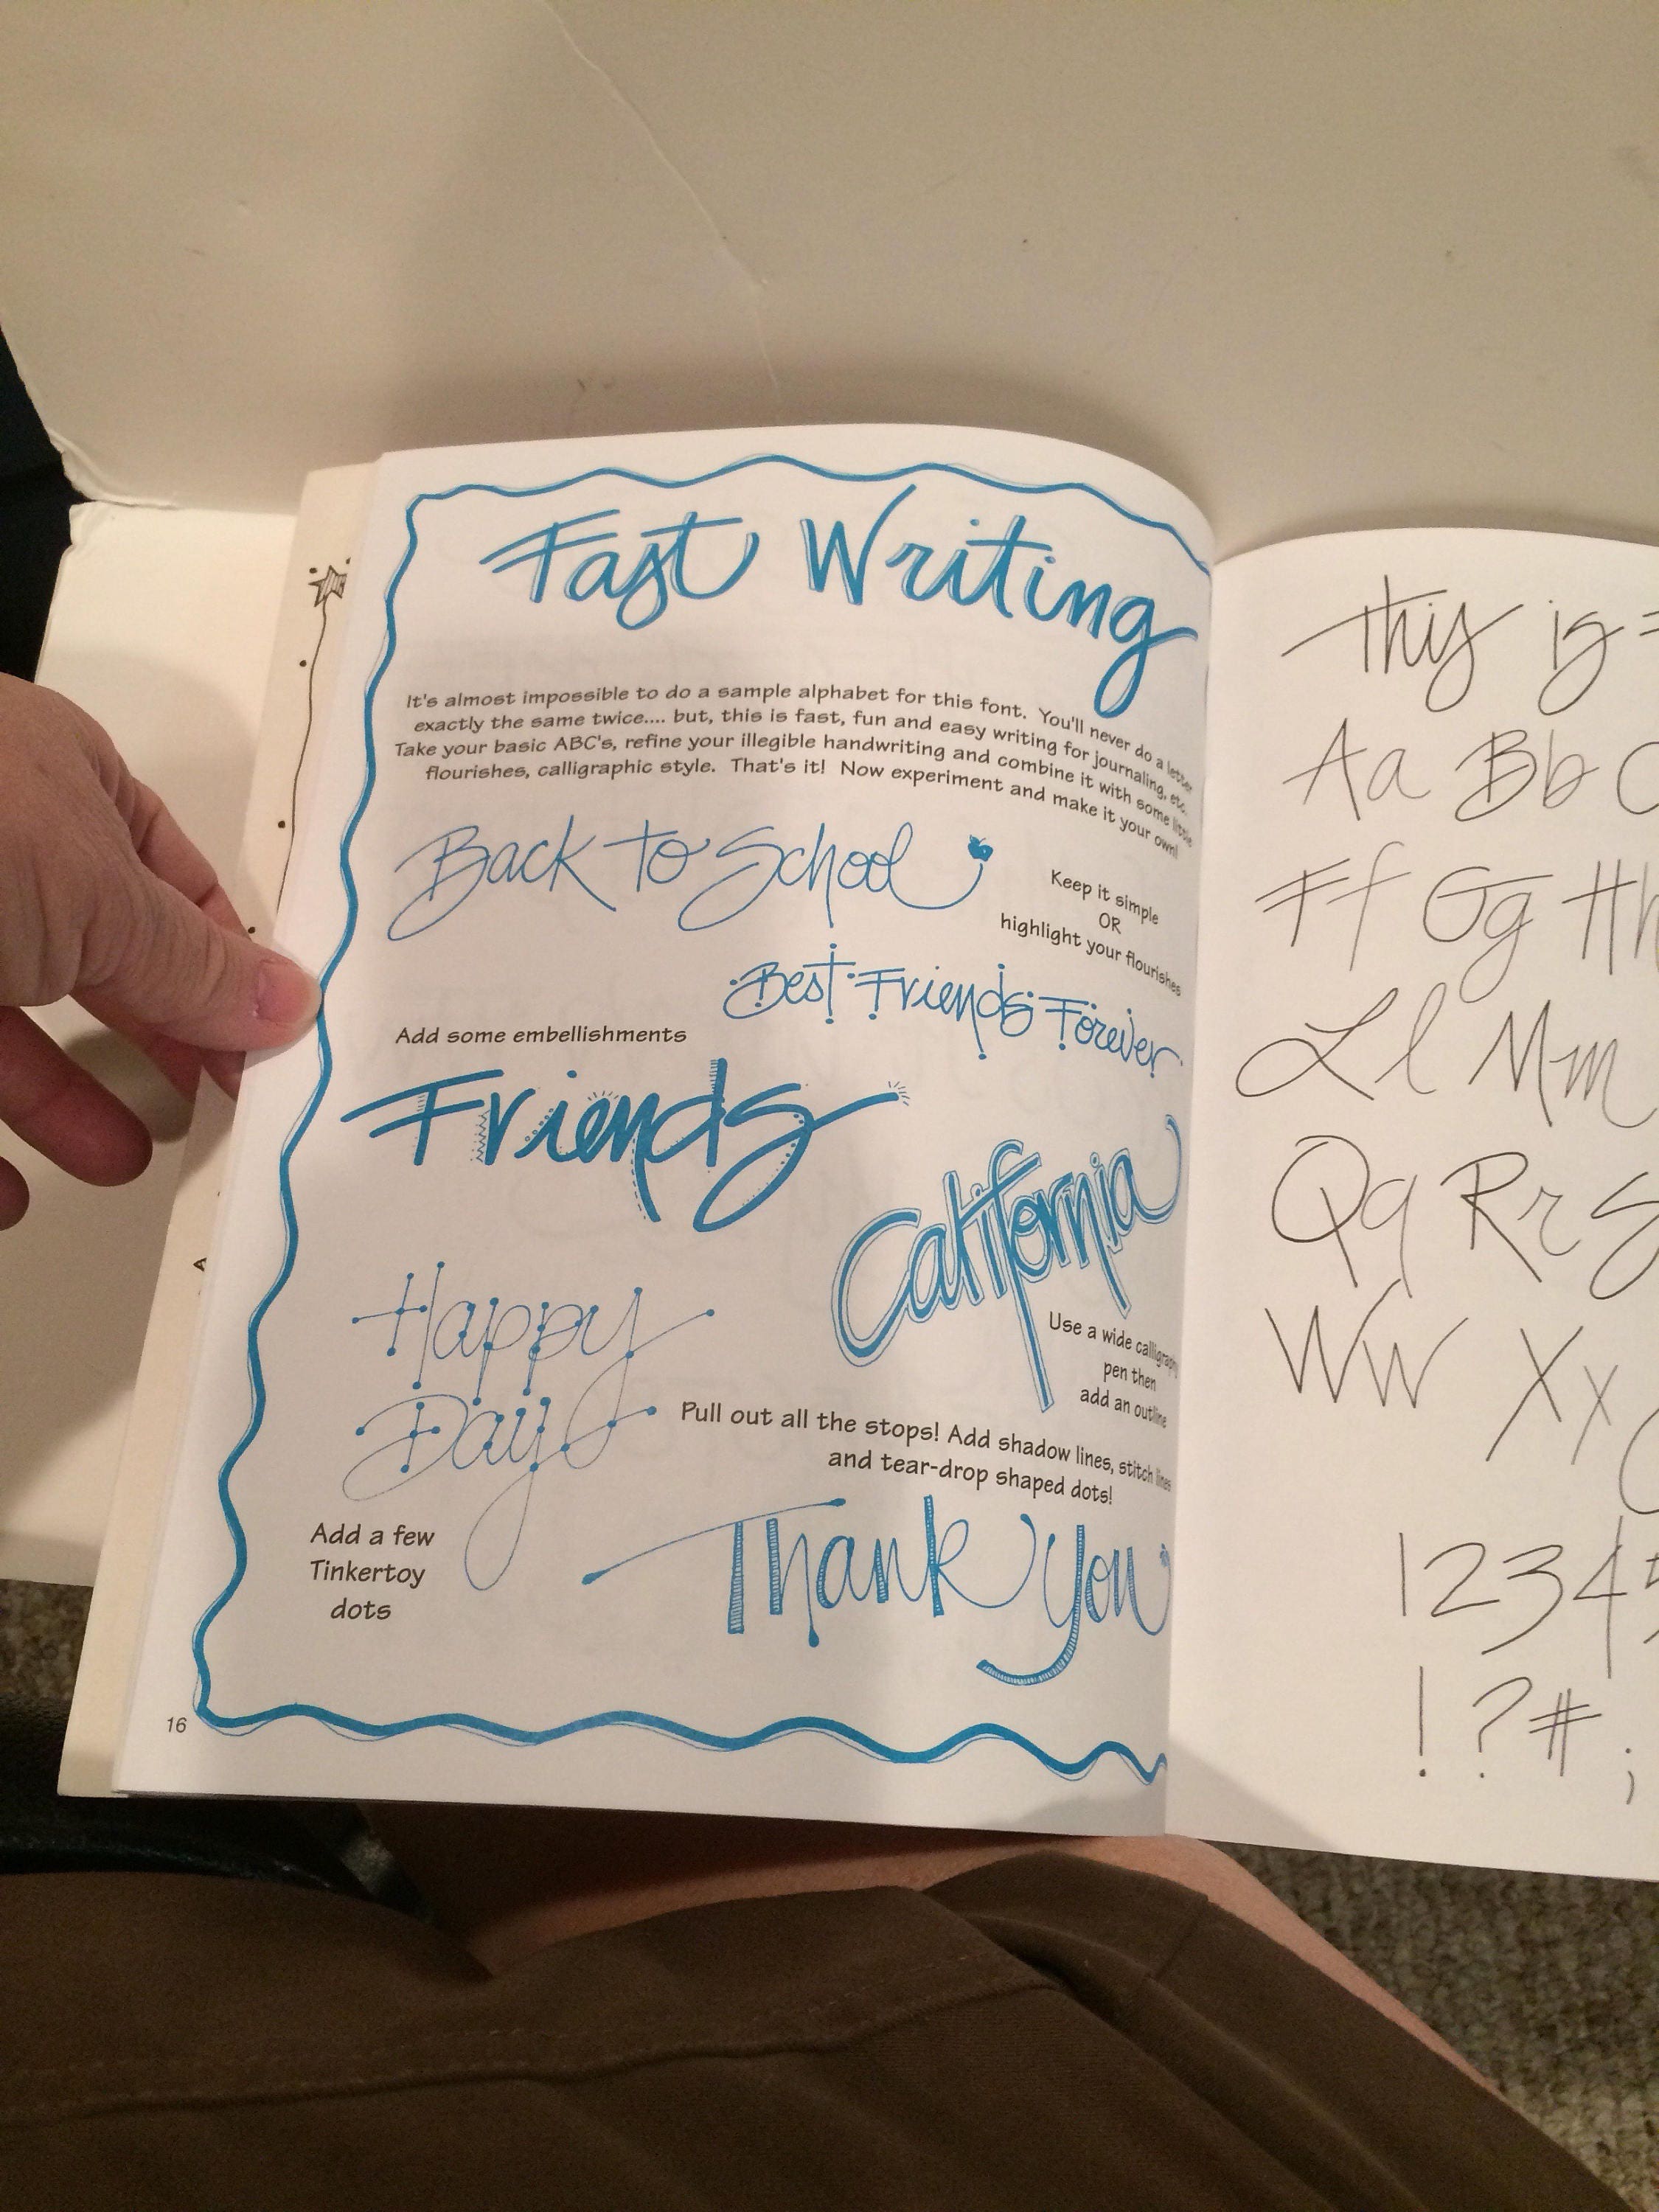 Fast Writing
It's almost impossible to do a sample alphabet for this font. You'll never do a letter
exactly the same twice.... but, this is fast, fun and easy writing for journaling, etc.
Take your basic ABC's, refine your illegible handwriting and combine it with some little
flourishes, calligraphic style. That's it! Now experiment and make it your own!
Back to School
Keep it simple
OR
highlight your flourishes
Best Friends Forever
Add some embellishments
Friends
California
Use a wide calligraphy
pen then
add an outline
Happy
Days
Pull out all the stops! Add shadow lines, stitch lines
and tear-drop shaped dots!
Add a few
Tinkertoy
dots
Thank You
16
This is
Aa Bb C
Ff Gg Hh
Ll Mm
Qq Rr S
Ww Xx
12345
!?#;